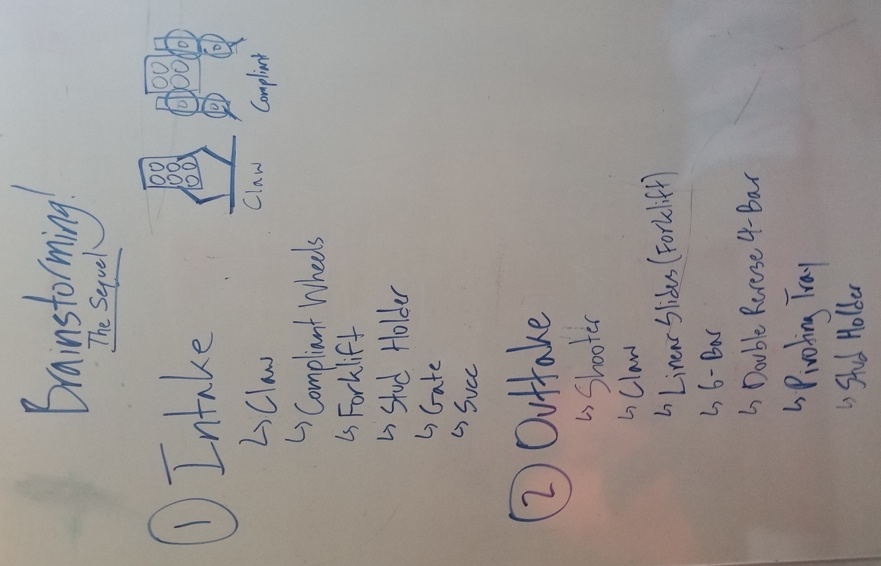 Brainstorming!
The Sequel
Claw
Compliant
1 Intake
↳ Claw
↳ Compliant Wheels
↳ Forklift
↳ Stud Holder
↳ Gate
↳ Succ
2 Outtake
↳ Shooter
↳ Claw
↳ Linear Slides (Forklift)
↳ 6-Bar
↳ Double Rerese 4-Bar
↳ Pivoting Tray
↳ Stud Holder